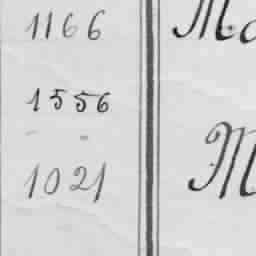 1166 Ma
1556
1021 M